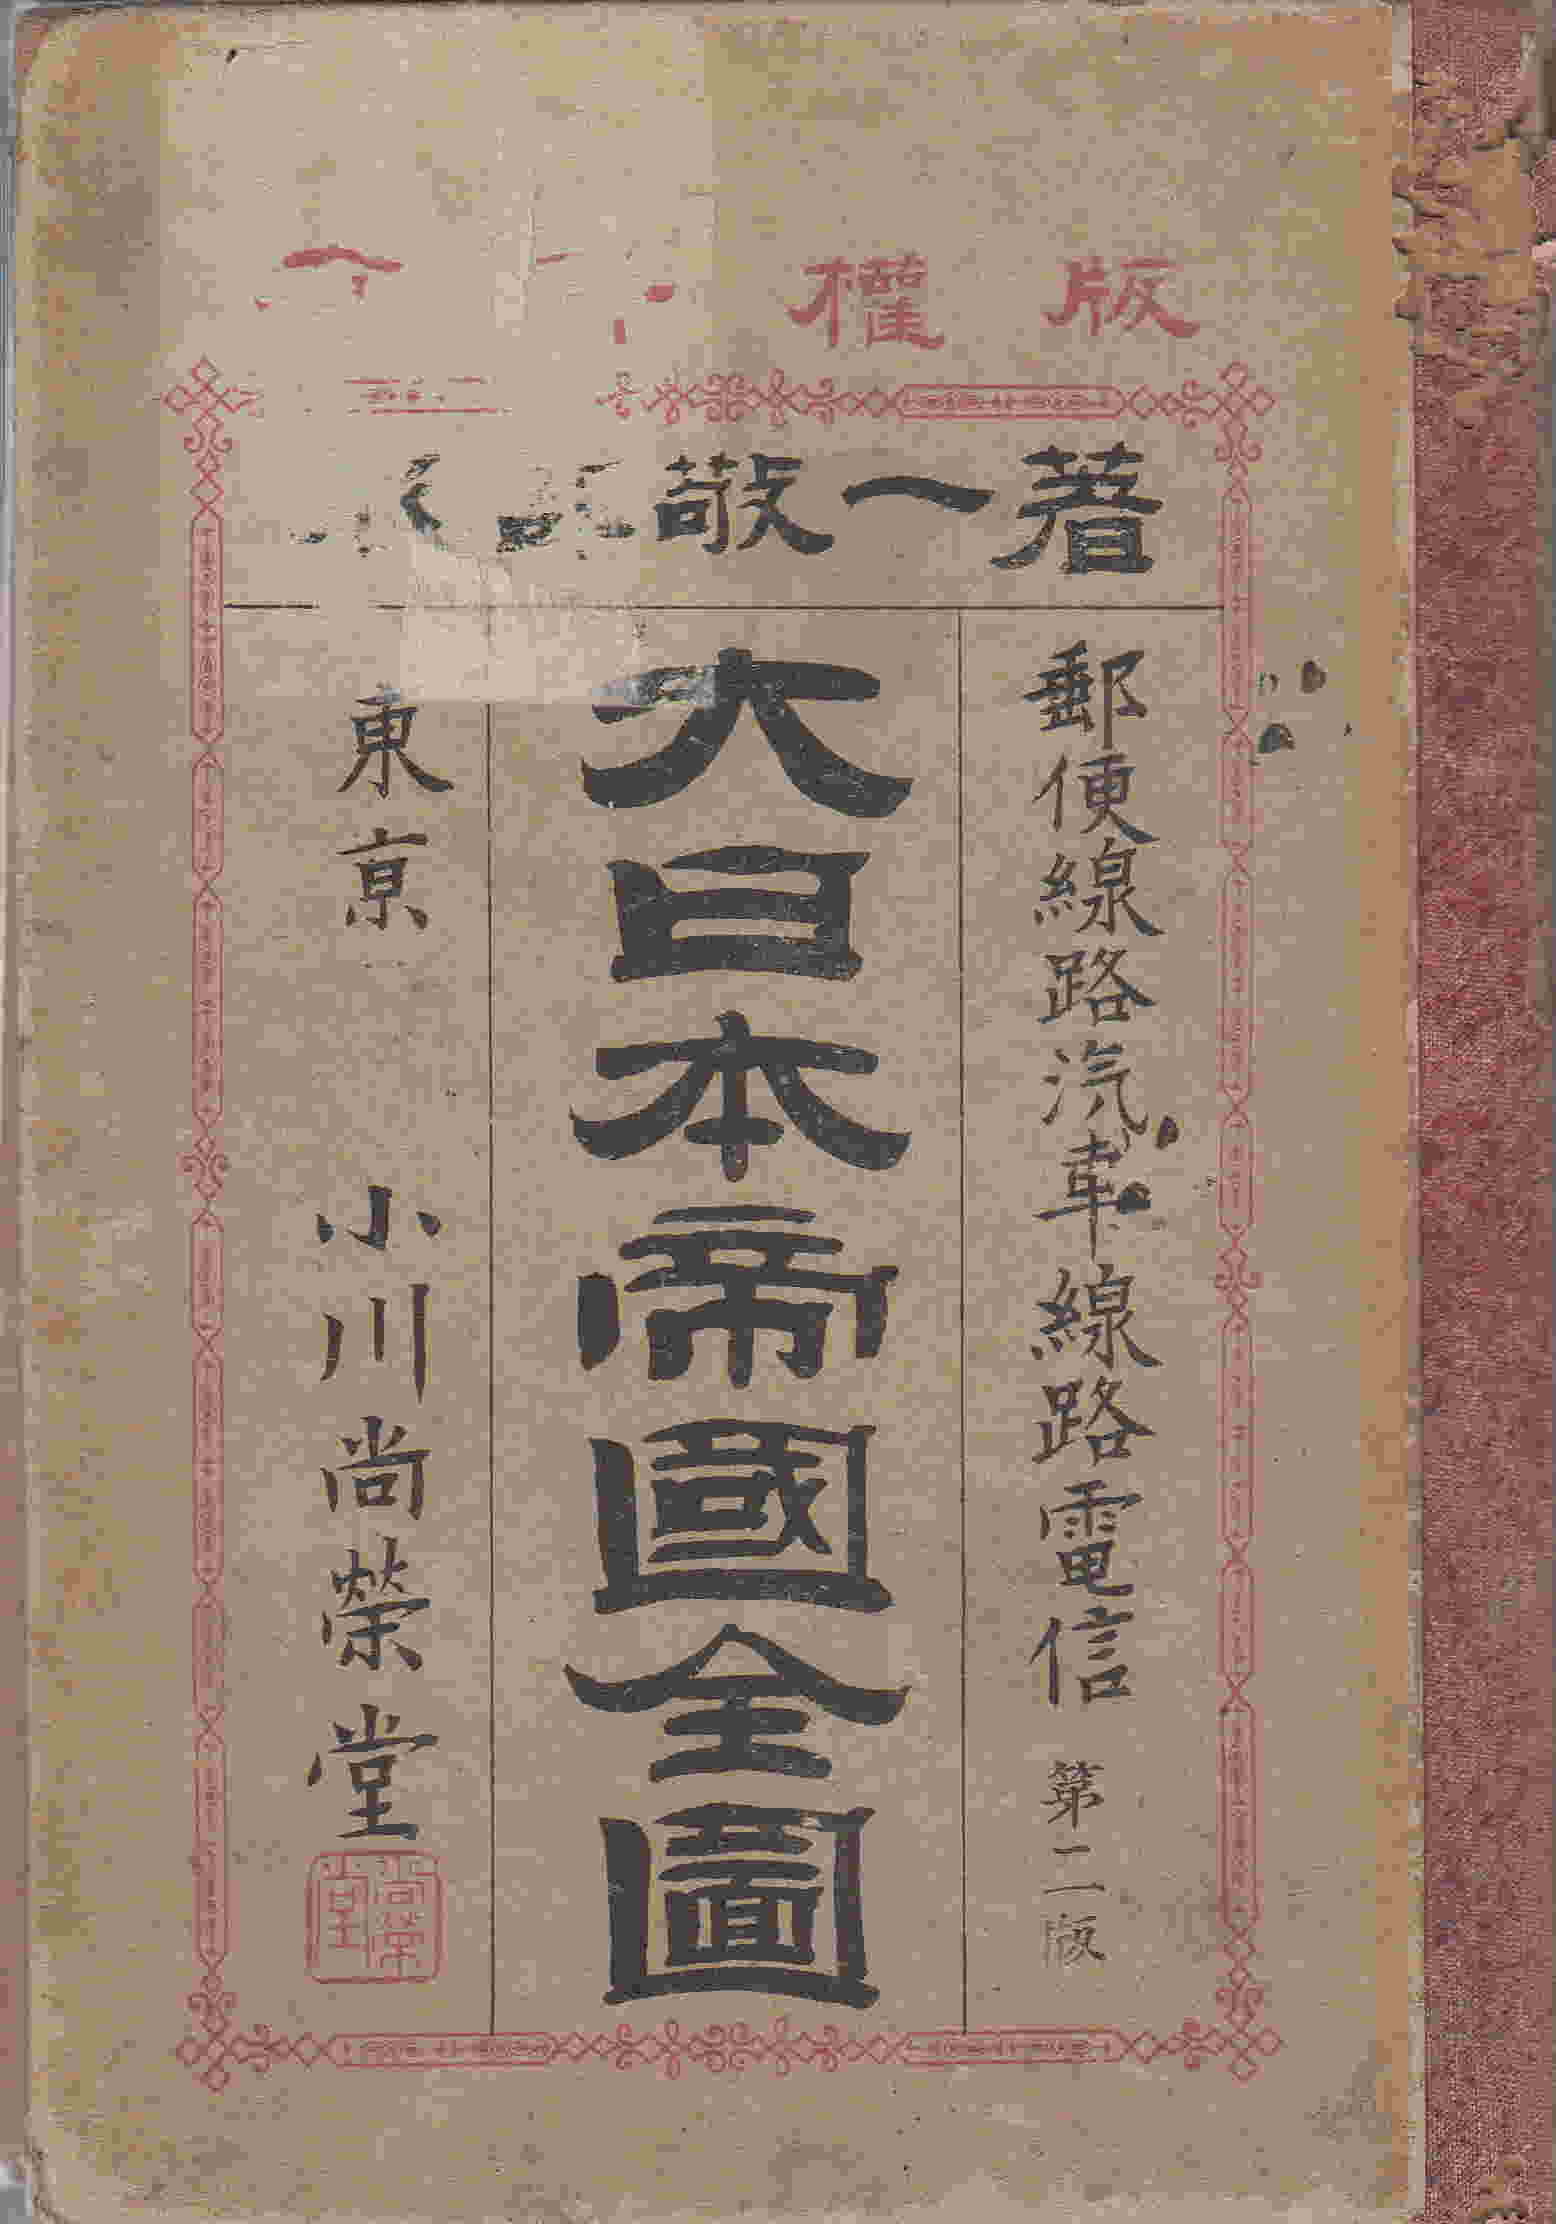 版權
敬一著
郵便線路汽車線路電信 第二版
大日本帝國全圖
東亰 小川尚榮堂
尚榮堂